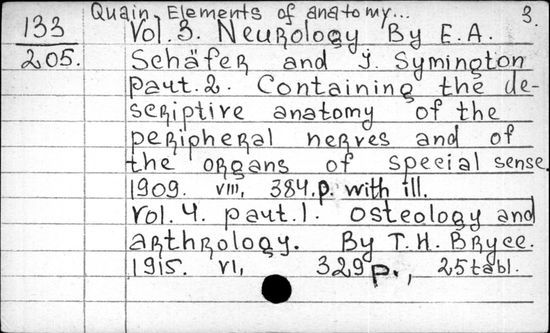 Quain, Elements of anatomy... 3.
133 Vol. 3. Neurology By E.A.
205. Schäfer and J. Symington
part. 2. Containing the de-
scriptive anatomy of the
peripheral nerves and of
the organs of special sense.
1909. VIII, 384.p. with ill.
Vol. 4. part. 1. Osteology and
arthrology. By T. H. Bryce.
1915. VI, 329 p., 25 tabl.